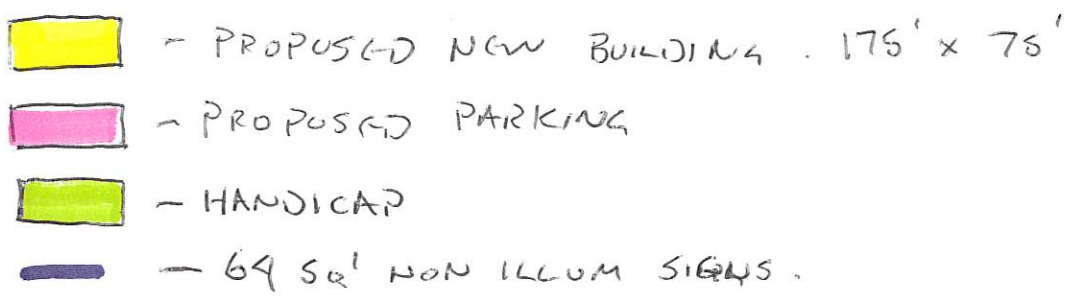 - PROPOSED NEW BUILDING . 175' x 75'
- PROPOSED PARKING
- HANDICAP
- 64 SQ' NON ILLUM SIGNS.